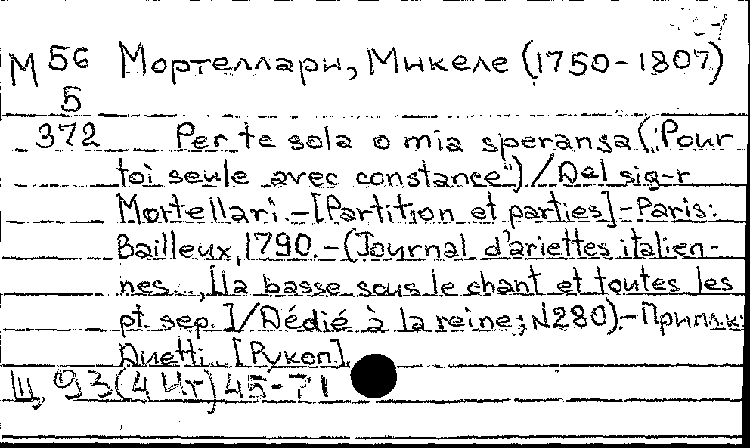 М 56 Мортеллари, Микеле (1750-1807)
5
372 Per te sola o mia speransa ("Pour
toi seule avec constance")/Del sig-r
Mortellari.-[Partition et parties]-Paris:
Bailleux, 1790.-(Journal d'ariettes italien-
nes..., [la basse sous le chant et toutes les
pt. sep.]/Dédié à la reine; N280).-Припл.к:
Duetti. [Рукоп].
Ш, 93(4 Ит)45-71